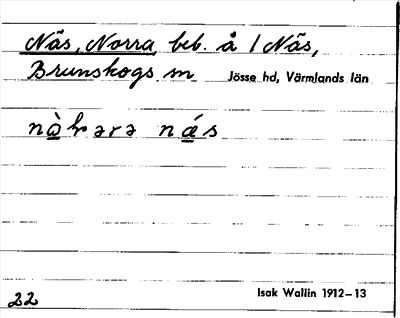 Näs, Norra, beb. å 1 Näs,
Brunskogs sn Jösse hd, Värmlands län
nǽs
22 Isak Wallin 1912–13